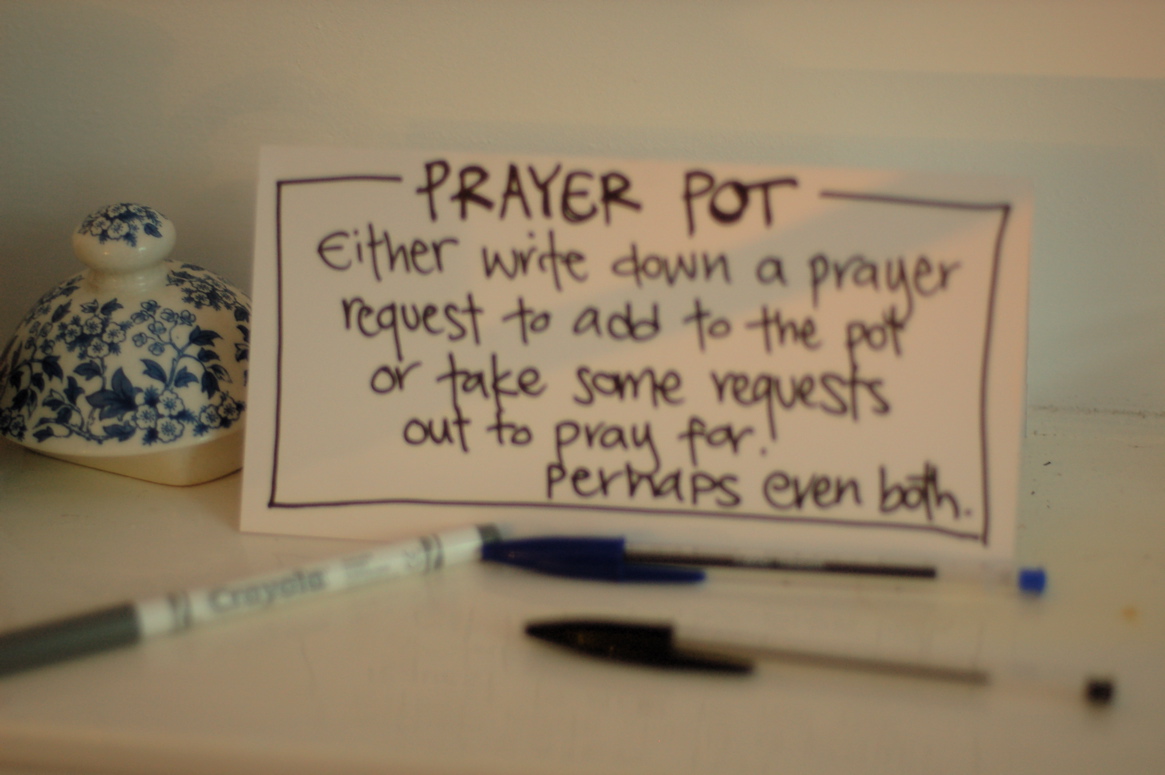 PRAYER POT
Either write down a prayer
request to add to the pot
or take some requests
out to pray for.
Perhaps even both.
Crayola